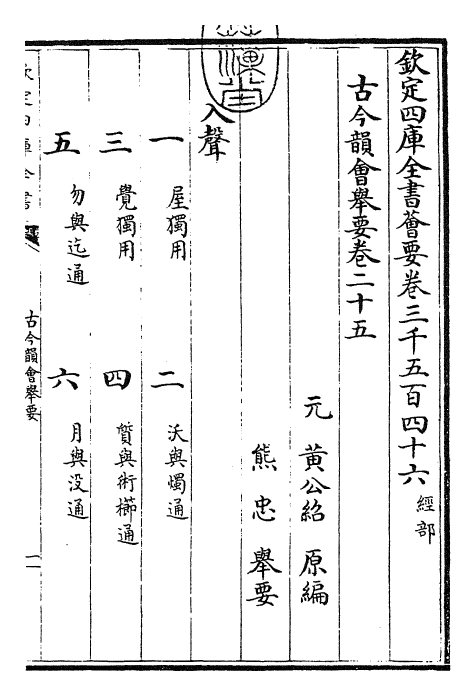 欽定四庫全書薈要卷三千五百四十六 經部
古今韻會舉要卷二十五
元 黃公紹 原編
熊忠 舉要
入聲
一 屋獨用 二 沃與燭通
三 覺獨用 四 質與術櫛通
五 勿與迄通 六 月與没通
欽定四庫全書
古今韻會舉要